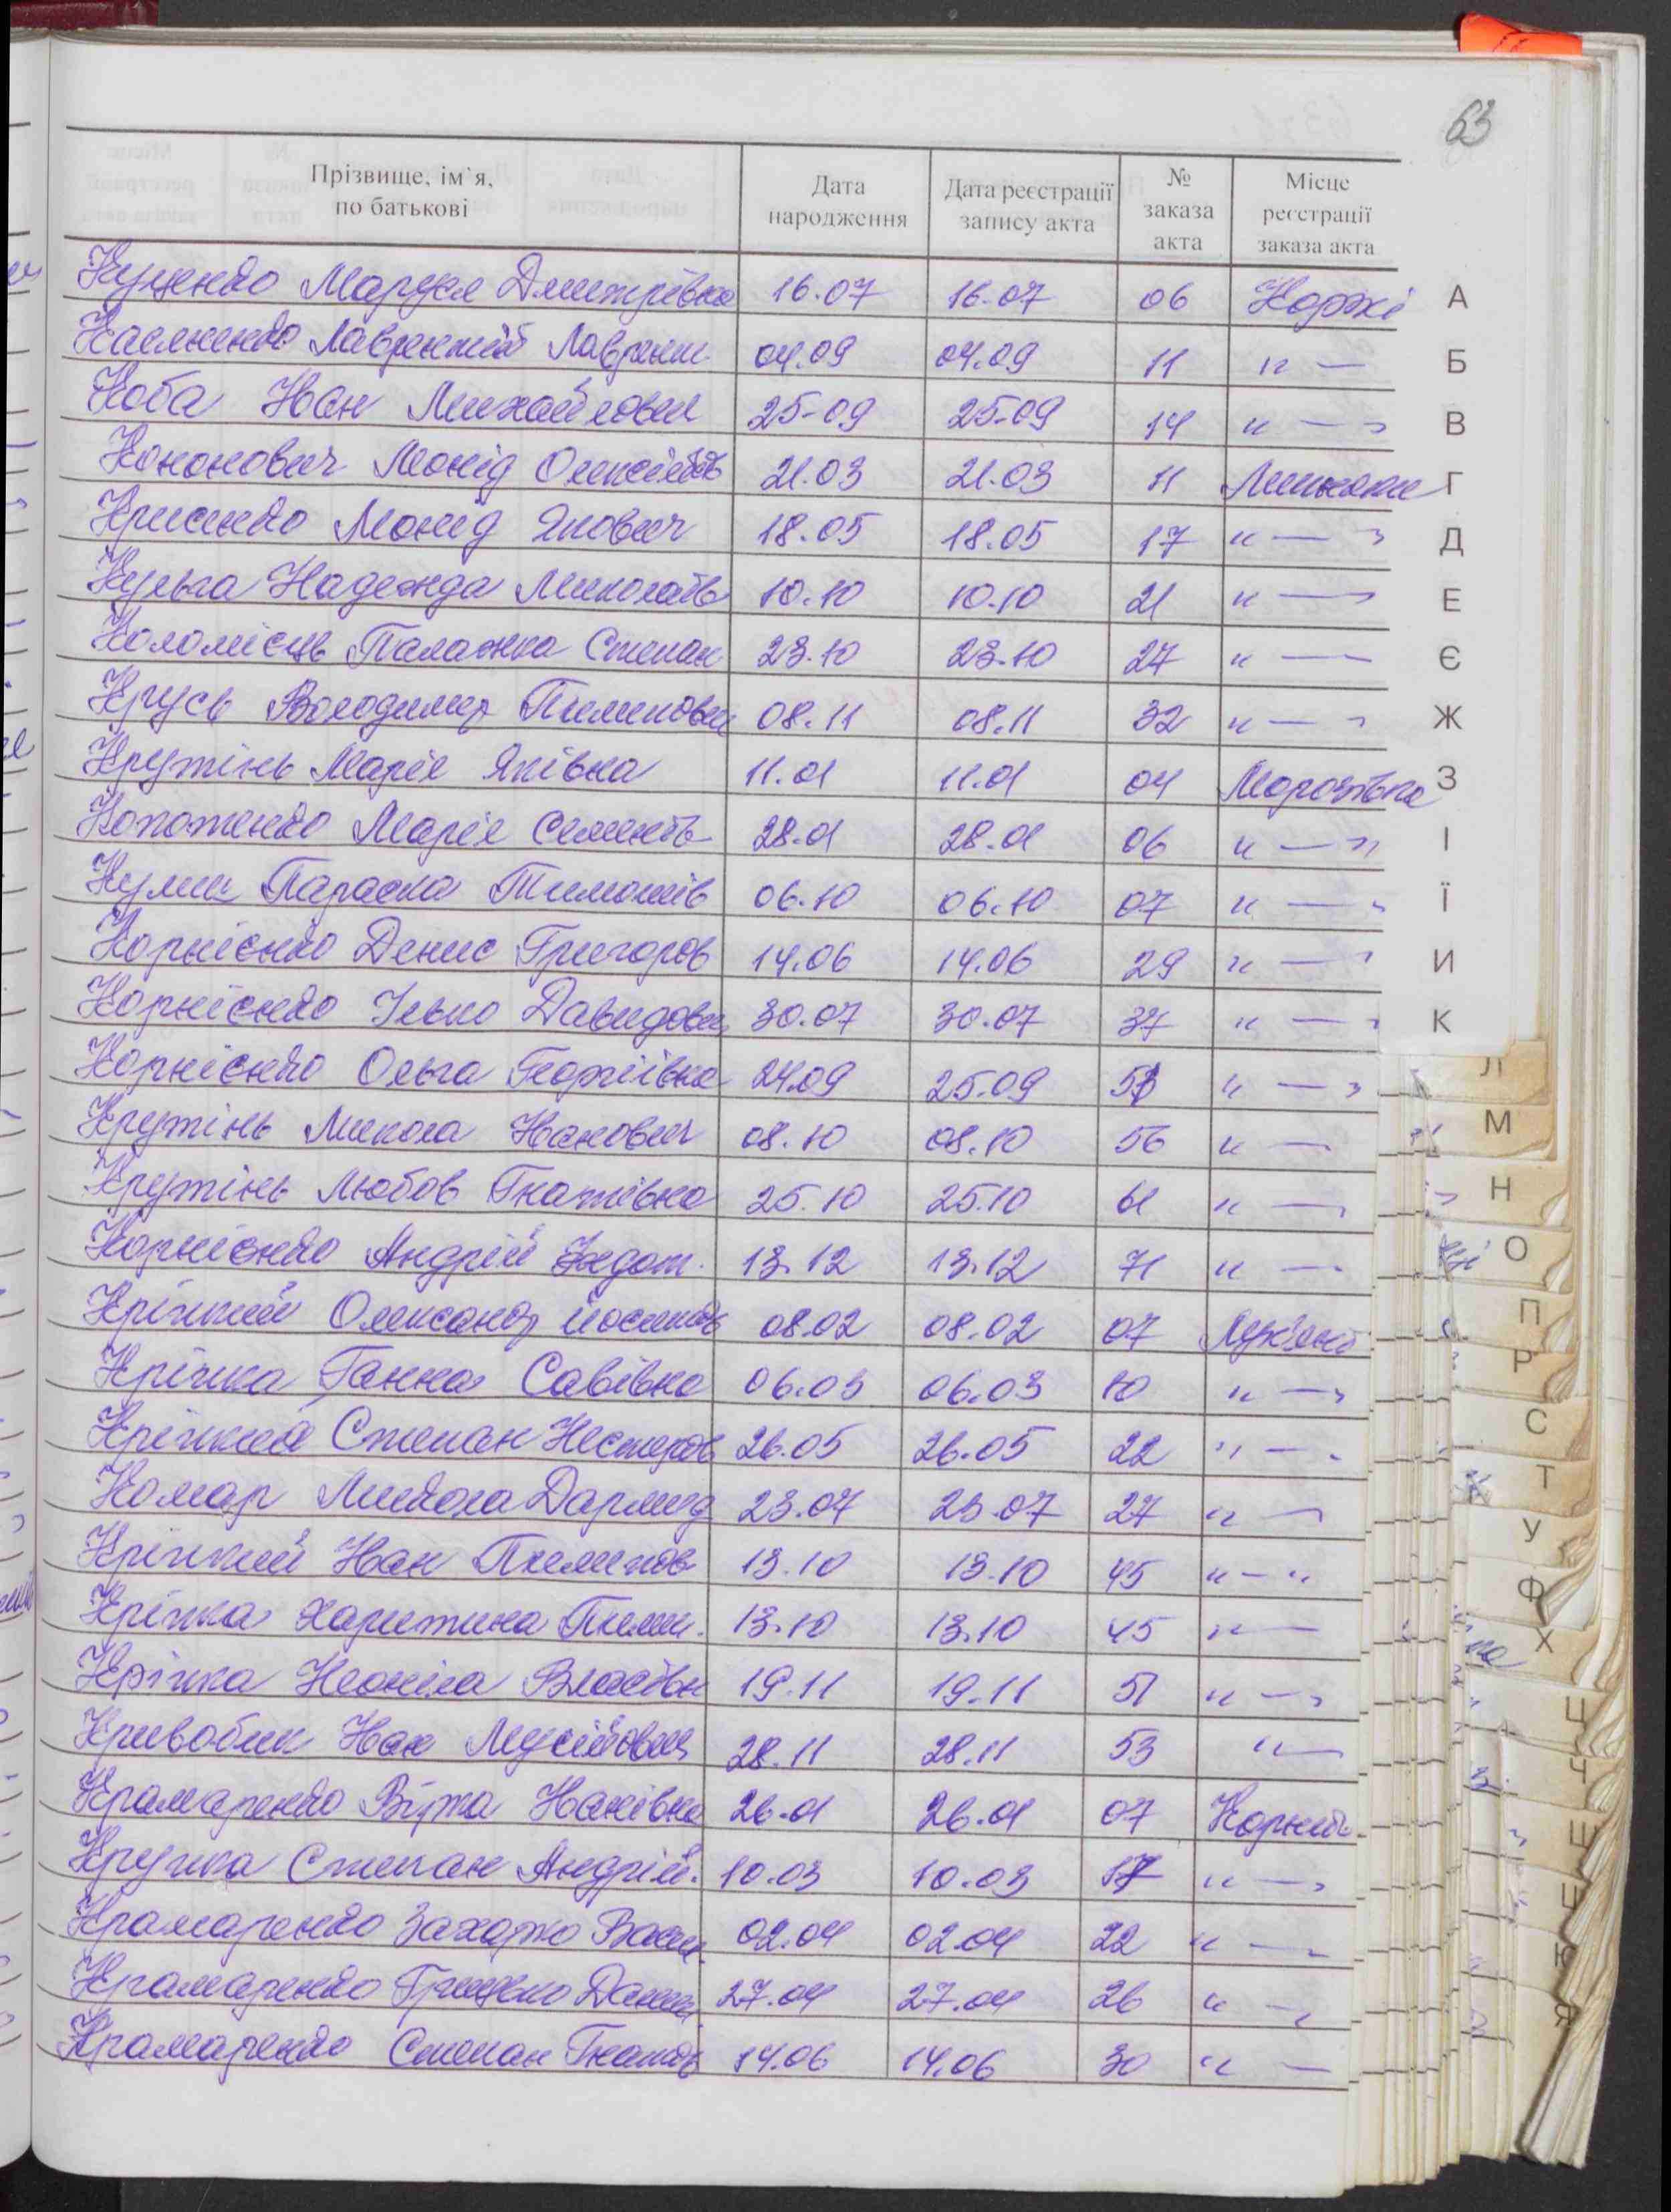 63
Прізвище, ім'я, по батькові Дата народження Дата реєстрації запису акта № заказа акта Місце реєстрації заказа акта
Куценко Маруся Дмитрівна 16.07 16.07 06 Коржі А
Лаврентій Лаврент 04.09 04.09 11 " — Б
Коба Іван Михайлович 25-09 25.09 14 " — " В
Кононович Леонід Олексійов 21.03 21.03 11 Г
Леонід Якович 18.05 18.05 17 " — " Д
Кульга Надежда Миколаїв 10.10 10.10 21 " — " Е
Коломієць Палажка Степан 23.10 23.10 27 " — Є
Крусь Володимир Пилипович 08.11 08.11 32 " — " Ж
Крутінь Марія Яківна 11.01 11.01 04 Морозівка З
Марія Семенів 28.01 28.01 06 " — " І
Кулиш Параска Тимошів 06.10 06.10 07 " — " Ї
Корнієнко Денис Григоров 14.06 14.06 29 " — " И
Корнієнко Ілько Давидович 30.07 30.07 37 " — " К
Корнієнко Ольга Георгіївна 24.09 25.09 " — " Л
Крутінь Микола Іванович 08.10 08.10 56 " — М
Крутінь Любов Гнатівна 25.10 25.10 61 " — " Н
Корнієнко Андрій Федот. 13.12 13.12 71 " — О
Крічкий Олександ Йосипов 08.02 08.02 07 Лук'янів П
Крічка Ганна Савівна 06.03 06.03 10 " — " Р
Крічкий Степан Нестеров 26.05 26.05 22 " — " С
Комар Микола 23.07 23.07 27 " — Т
Крічкий Іван Пилипов 13.10 13.10 45 " — " У
Крічка Харитина Пилип. 13.10 13.10 45 " — Ф
Крічка Неоніла Власівн 19.11 19.11 51 " — " Х
Кривобик Іван Мусійович 28.11 28.11 53 " — Ц
Крамаренко Віра Іванівна 26.01 26.01 07 Ч
Кручка Степан Андрій. 10.03 10.03 17 " — " Ш
Крамаренко Захарко Васил 02.04 02.04 22 " — Щ
Крамаренко Грицько Данил 27.04 27.04 26 " — " Ю
Крамаренко Степан Гнатов 14.06 14.06 30 " — Я